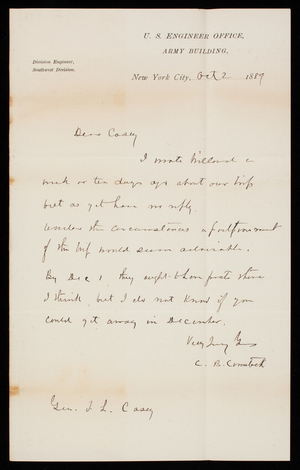 U. S. ENGINEER OFFICE,
ARMY BUILDING,
Division Engineer,
Southwest Division.
New York City, Oct 2 1889
Dear Casey
I wrote Willard a
week or ten days ago about our trip
but as yet have no reply.
Under the circumstances a postponement
of the trip would seem advisable.
By Dec 1, they ought to have frosts there
I think, but I do not know if you
could get away in December.
Very Truly Yrs
C. B. Comstock
Gen. T L. Casey